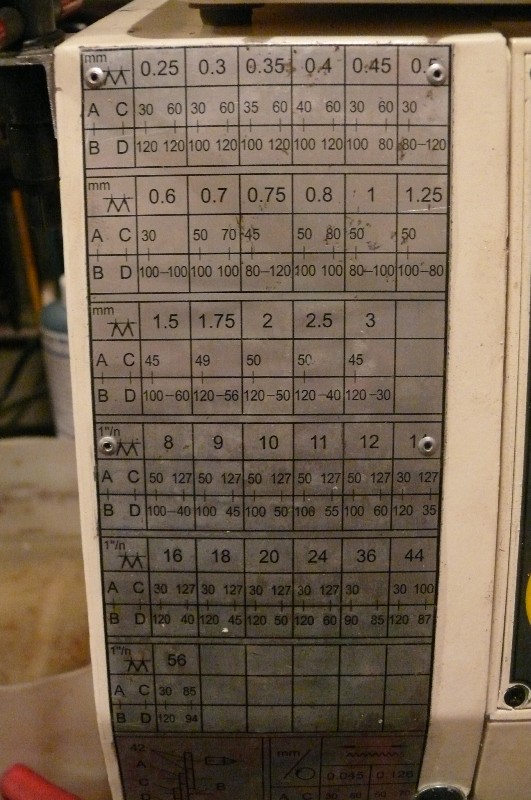 mm 0.25 0.3 0.35 0.4 0.45 0.5
A C 30 60 30 60 35 60 40 60 30 60 30
B D 120 120 100 120 100 120 100 120 100 80 80–120
mm 0.6 0.7 0.75 0.8 1 1.25
A C 30 50 70 45 50 80 50 50
B D 100–100 100 100 80–120 100 100 80–100 100–80
mm 1.5 1.75 2 2.5 3
A C 45 49 50 50 45
B D 100–60 120–56 120–50 120–40 120–30
1"/n 8 9 10 11 12 1
A C 50 127 50 127 50 127 50 127 50 127 30 127
B D 100–40 100 45 100 50 100 55 100 60 120 35
1"/n 16 18 20 24 36 44
A C 30 127 30 127 30 127 30 127 30 30 100
B D 120 40 120 45 120 50 120 60 90 85 120 87
1"/n 56
A C 30 85
B D 120 94
42 mm
A
C B 0.045 0.126
D A C